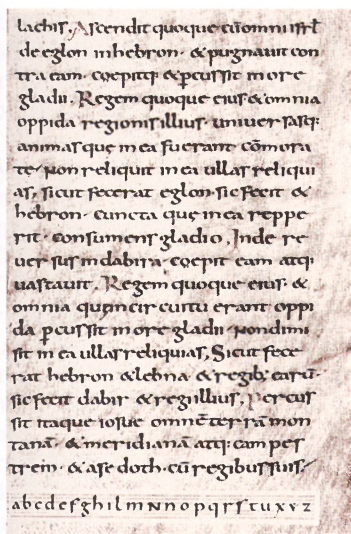 lachis. Ascendit quoque cũ omni isrl̃
de eglon in hebron · & pugnauit con
tra eam · coepitq; & pcussit in ore
gladii. Regem quoque eius & omnia
oppida regionis illius · uniuersasq;
animas quę in ea fuerant cõmora
te · Non reliquit in ea ullas reliqui
as, sicut fecerat eglon · sic fecit &
hebron · cuncta quę in ea reppe
rit · consumens gladio, Inde re
uersus in dabira · coepit eam atq;
uastauit, Regem quoque eius · &
omnia in circuitu erant oppi
da pcussit in ore gladii · Non dimi
sit in ea ullas reliquias, Sicut fece
rat hebron & lebna · & regib; earũ ·
sic fecit dabir & regi illius, Percus
sit itaque iosue omnẽ terrã mon
tanã · & meridianã atq; campes
trem · & asedoth · cũ regibus suis ·
a b c d e f g h i l m N n o p q r s t u x y z